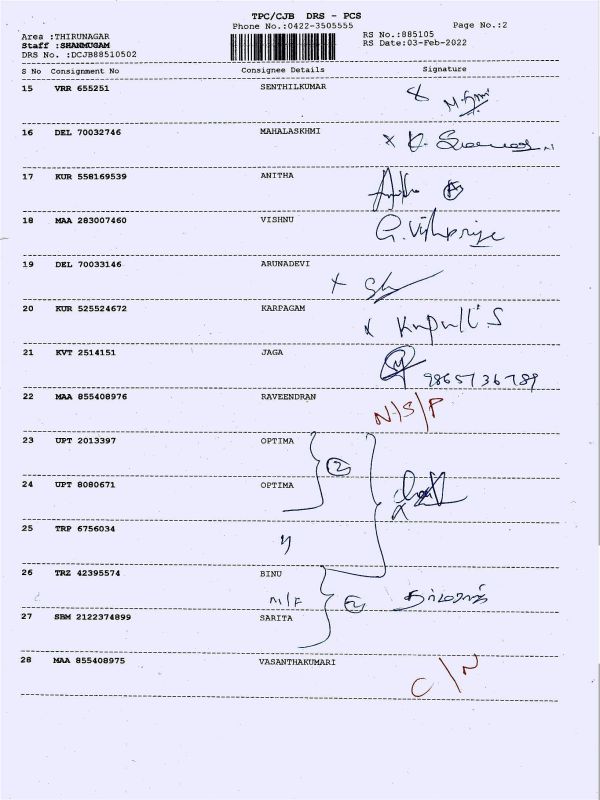 TPC/CJB DRS - PCS
Phone No.:0422-3505555
Page No.:2
Area :THIRUNAGAR
RS No.:885105
Staff :SHANMUGAM
RS Date:03-Feb-2022
DRS No. :DCJB88510502
S No Consignment No Consignee Details Signature
15 VRR 655251 SENTHILKUMAR
16 DEL 70032746 MAHALASKHMI
17 KUR 558169539 ANITHA
18 MAA 283007460 VISHNU G. Vishpriya
19 DEL 70033146 ARUNADEVI
20 KUR 525524672 KARPAGAM
21 KVT 2514151 JAGA
9865736789
22 MAA 855408976 RAVEENDRAN
N/S/P
23 UPT 2013397 OPTIMA
2
24 UPT 8080671 OPTIMA
25 TRP 6756034
26 TRZ 42395574 BINU
M/F
27 SBM 2122374899 SARITA
28 MAA 855408975 VASANTHAKUMARI
C/N